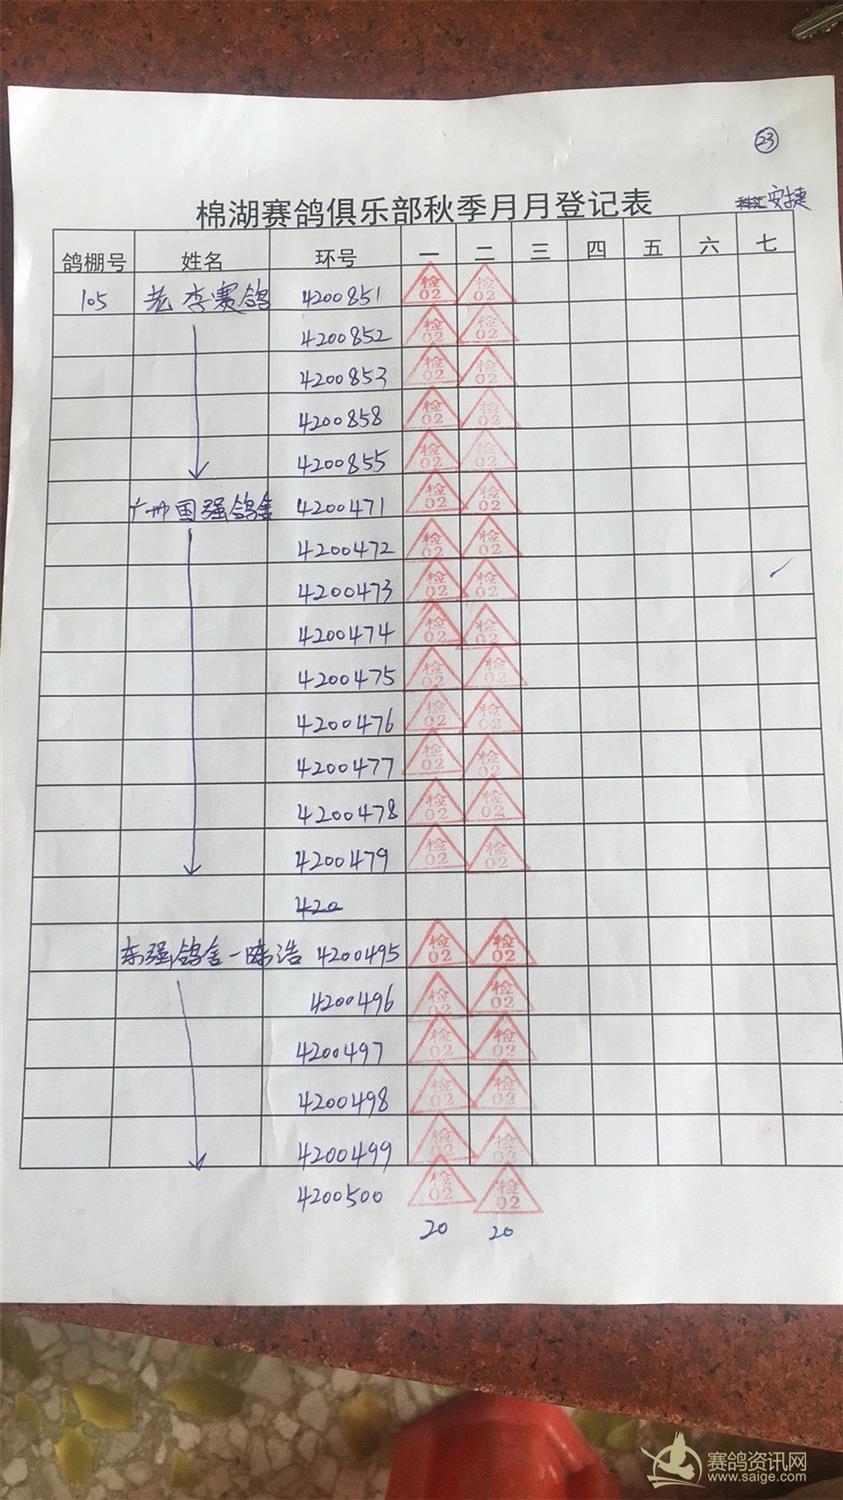 23
棉湖赛鸽俱乐部秋季月月登记表
安捷
鸽棚号 姓名 环号 一 二 三 四 五 六 七
105 老李赛鸽 4200851 检02 检02
4200852 检02 检02
4200853 检02 检02
4200858 检02 检02
4200855 检02 检02
广州国强鸽舍 4200471 检02 检02
4200472 检02 检02
4200473 检02 检02
4200474 检02 检02
4200475 检02 检02
4200476 检02 检02
4200477 检02 检02
4200478 检02 检02
4200479 检02 检02
420
东强鸽舍-陈浩 4200495 检02 检02
4200496 检02 检02
4200497 检02 检02
4200498 检02 检02
4200499 检02 检02
4200500 检02 检02
20 20
赛鸽资讯网
www.saige.com